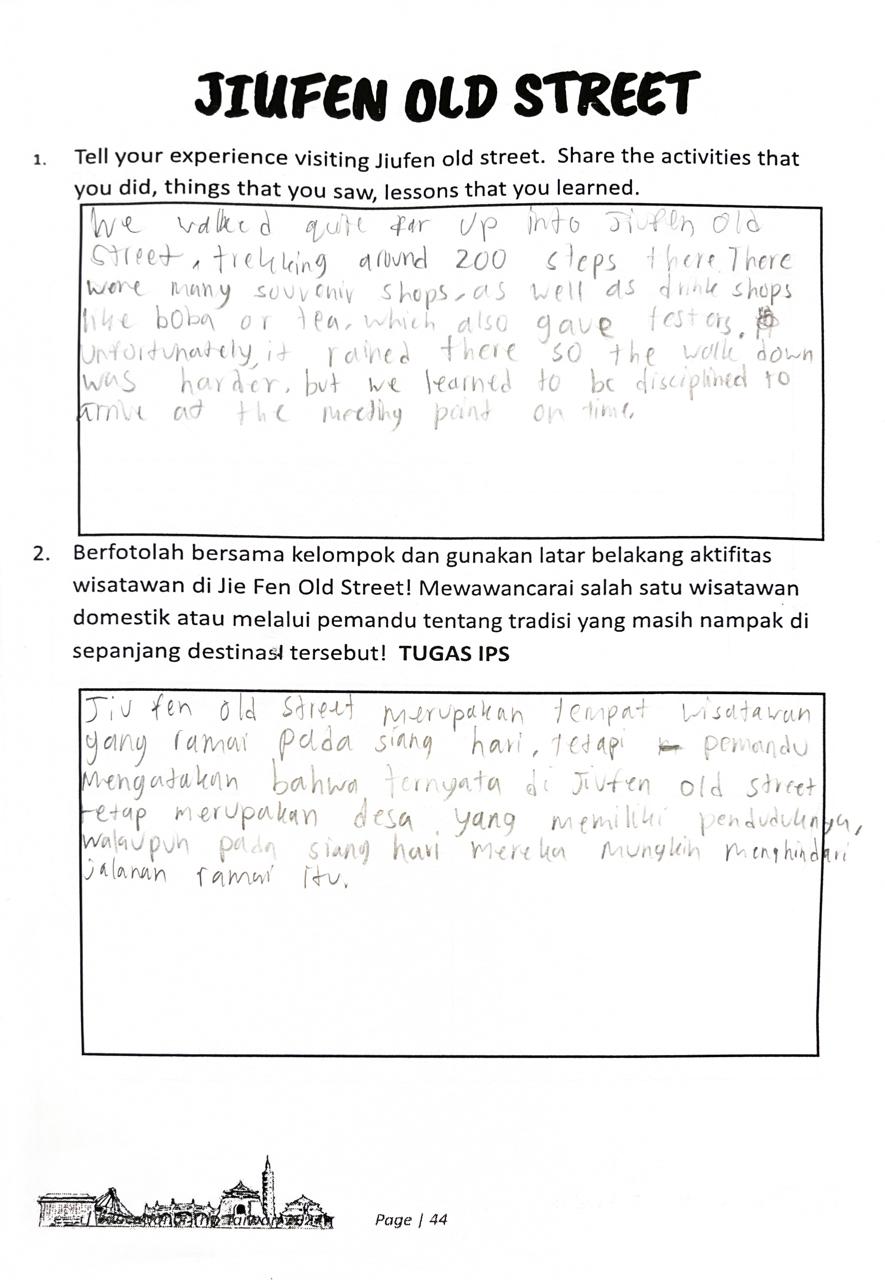 JIUFEN OLD STREET
1. Tell your experience visiting Jiufen old street. Share the activities that
you did, things that you saw, lessons that you learned.
We walked quite far up into Jiufen Old
Street, trekking around 200 steps there. There
were many souvenir shops, as well as drink shops
like boba or tea, which also gave testers.
Unfortunately, it rained there so the walk down
was harder, but we learned to be disciplined to
arrive at the meeting point on time.
2. Berfotolah bersama kelompok dan gunakan latar belakang aktifitas
wisatawan di Jie Fen Old Street! Mewawancarai salah satu wisatawan
domestik atau melalui pemandu tentang tradisi yang masih nampak di
sepanjang destinasi tersebut! TUGAS IPS
Jiu fen old street merupakan tempat wisatawan
yang ramai pada siang hari, tetapi pemandu
mengatakan bahwa ternyata di Jiufen old street
tetap merupakan desa yang memiliki penduduknya,
walaupun pada siang hari mereka mungkin menghindari
jalanan ramai itu.
Page | 44